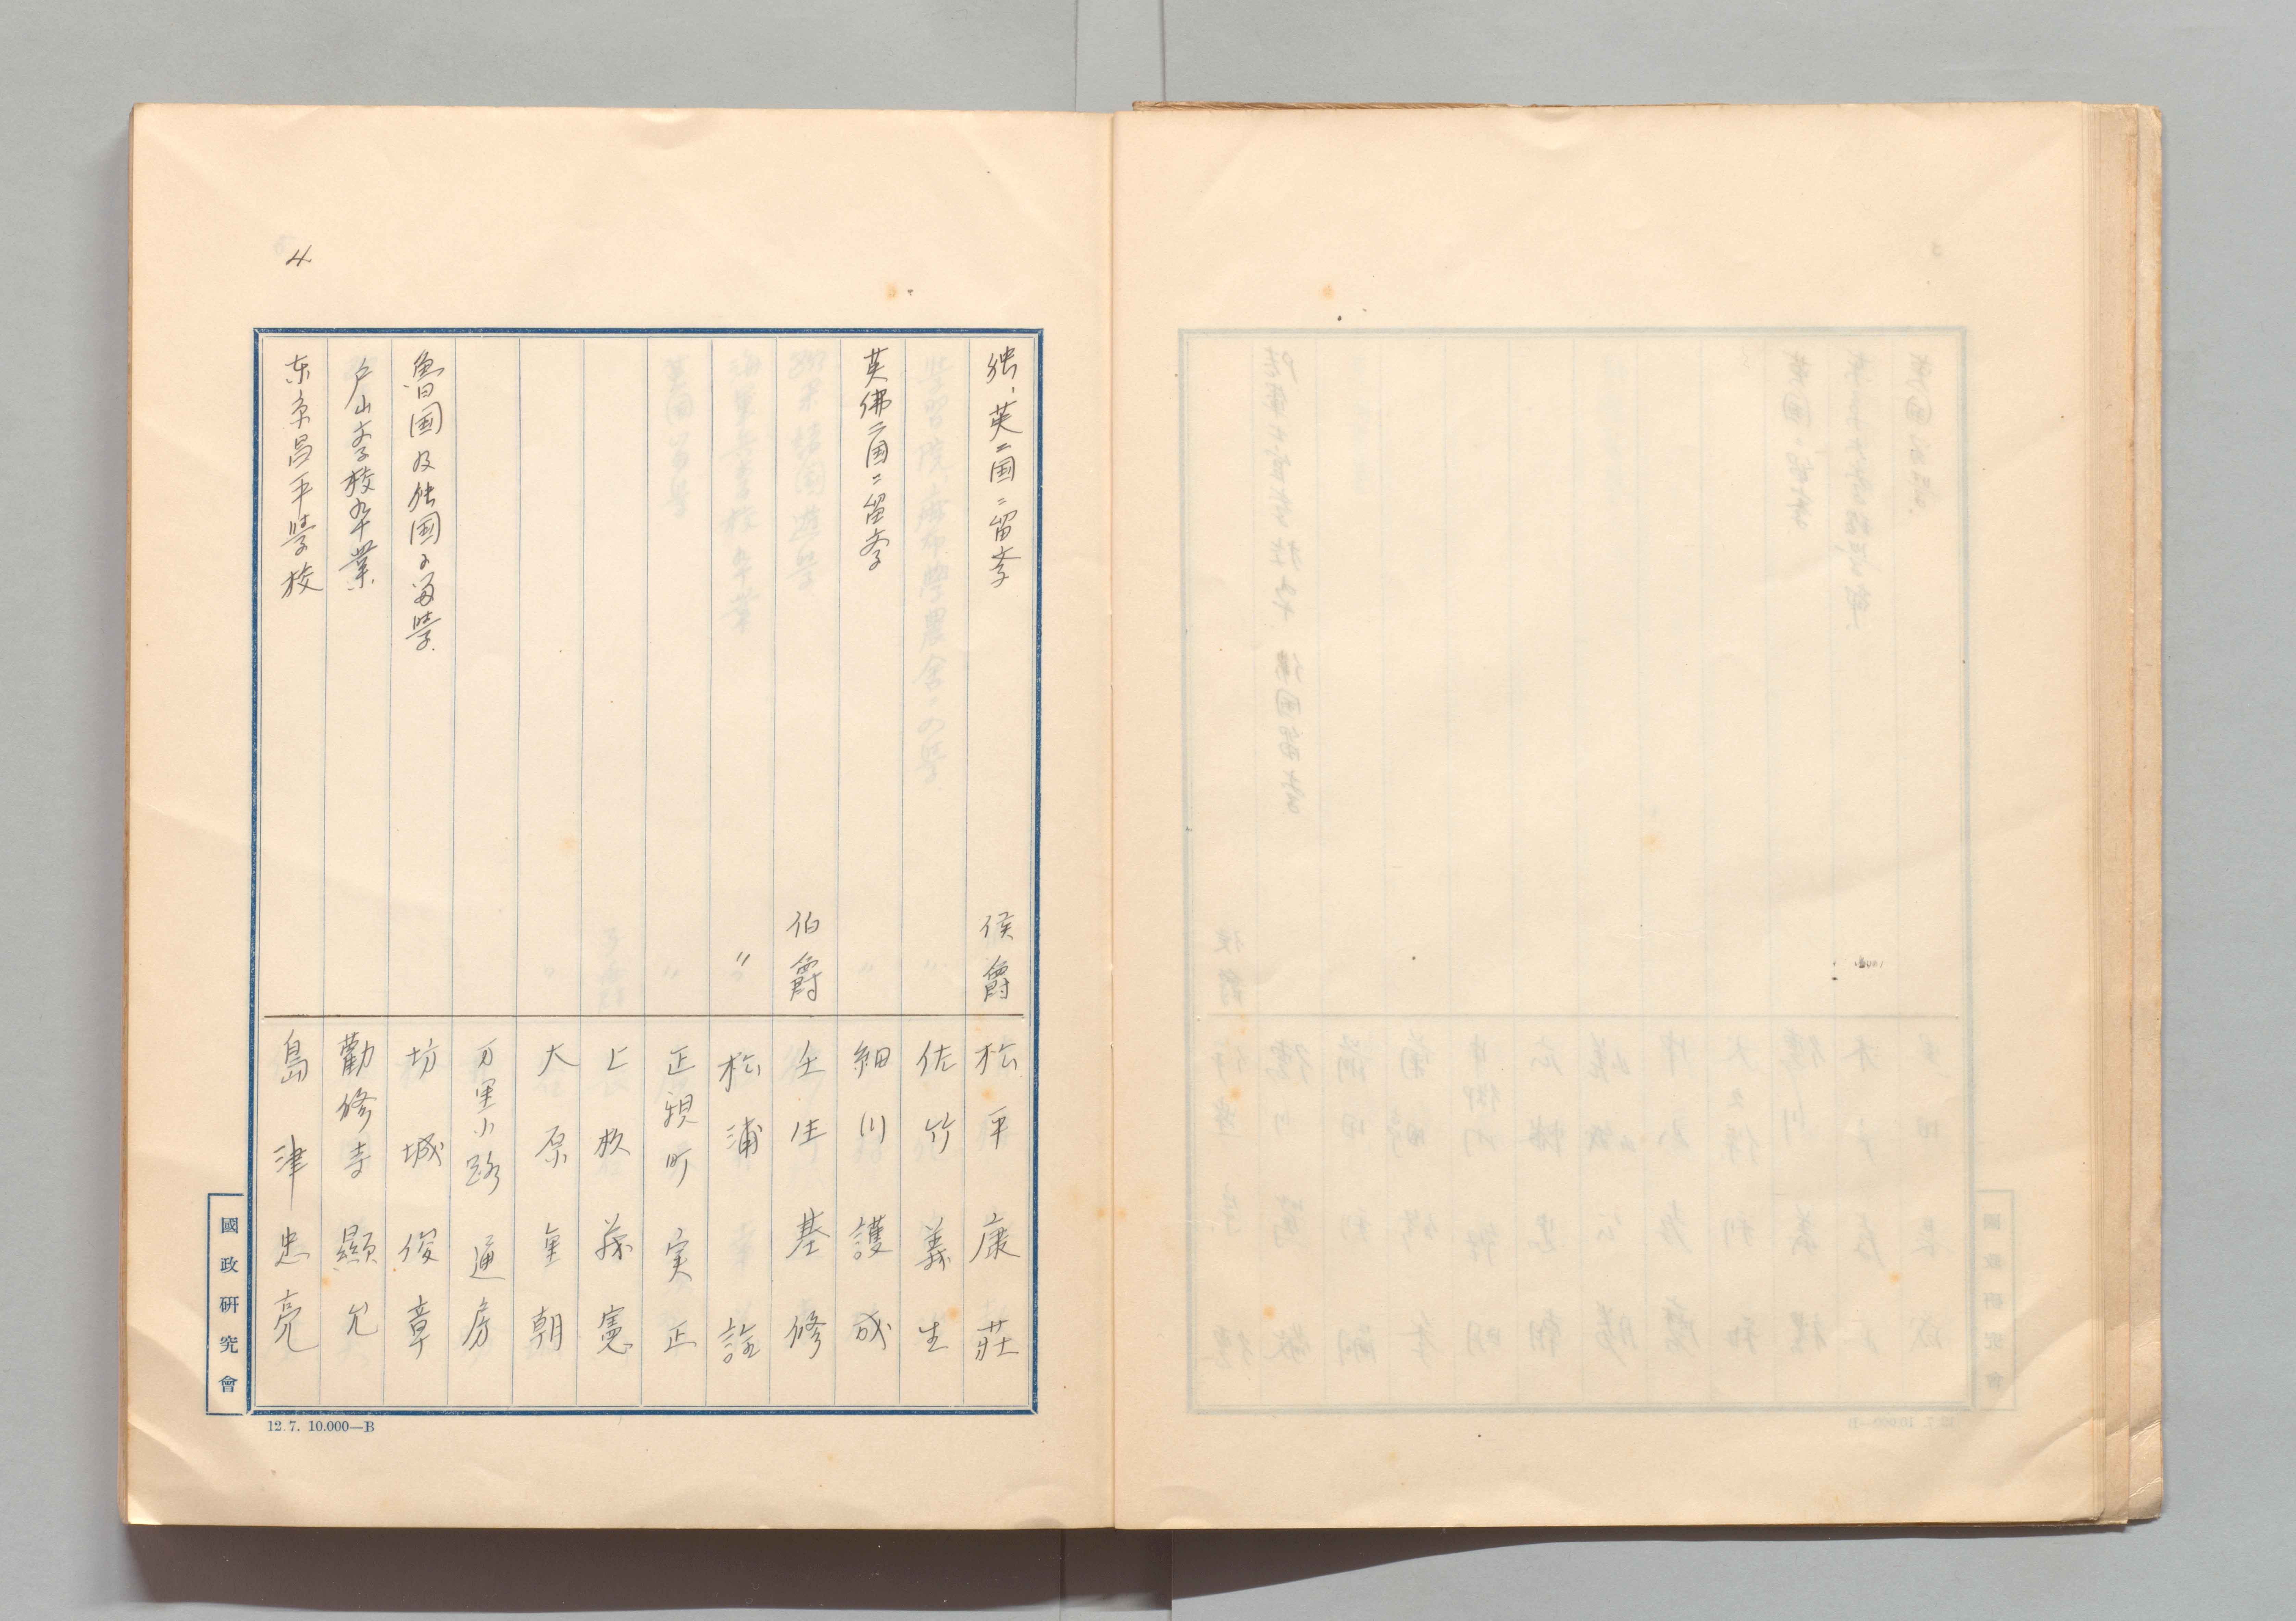 4
独、英二国ニ留学 侯爵 松平康莊
佐竹義生
英佛二国ニ留学 細川護成
伯爵 壬生基修
〃 松浦詮
正親町実正
上杉茂憲
大原重朝
万里小路通房
魯国及独国ニ留學 坊城俊章
戸山学校卆業 勸修寺顯允
东京昌平學校 島津忠亮
國政硏究會
12.7. 10.000—B